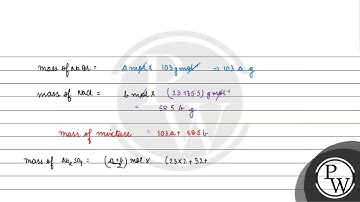 mass of NaBr = a mol x 103 g mol⁻¹ → 103 a g
mass of NaCl = b mol x (23+35.5) g mol⁻¹
= 58.5 b g
mass of mixture = 103 a + 58.5 b
mass of Na₂SO₄ = (a+b/2) mol x (23x2 + 32+
PW